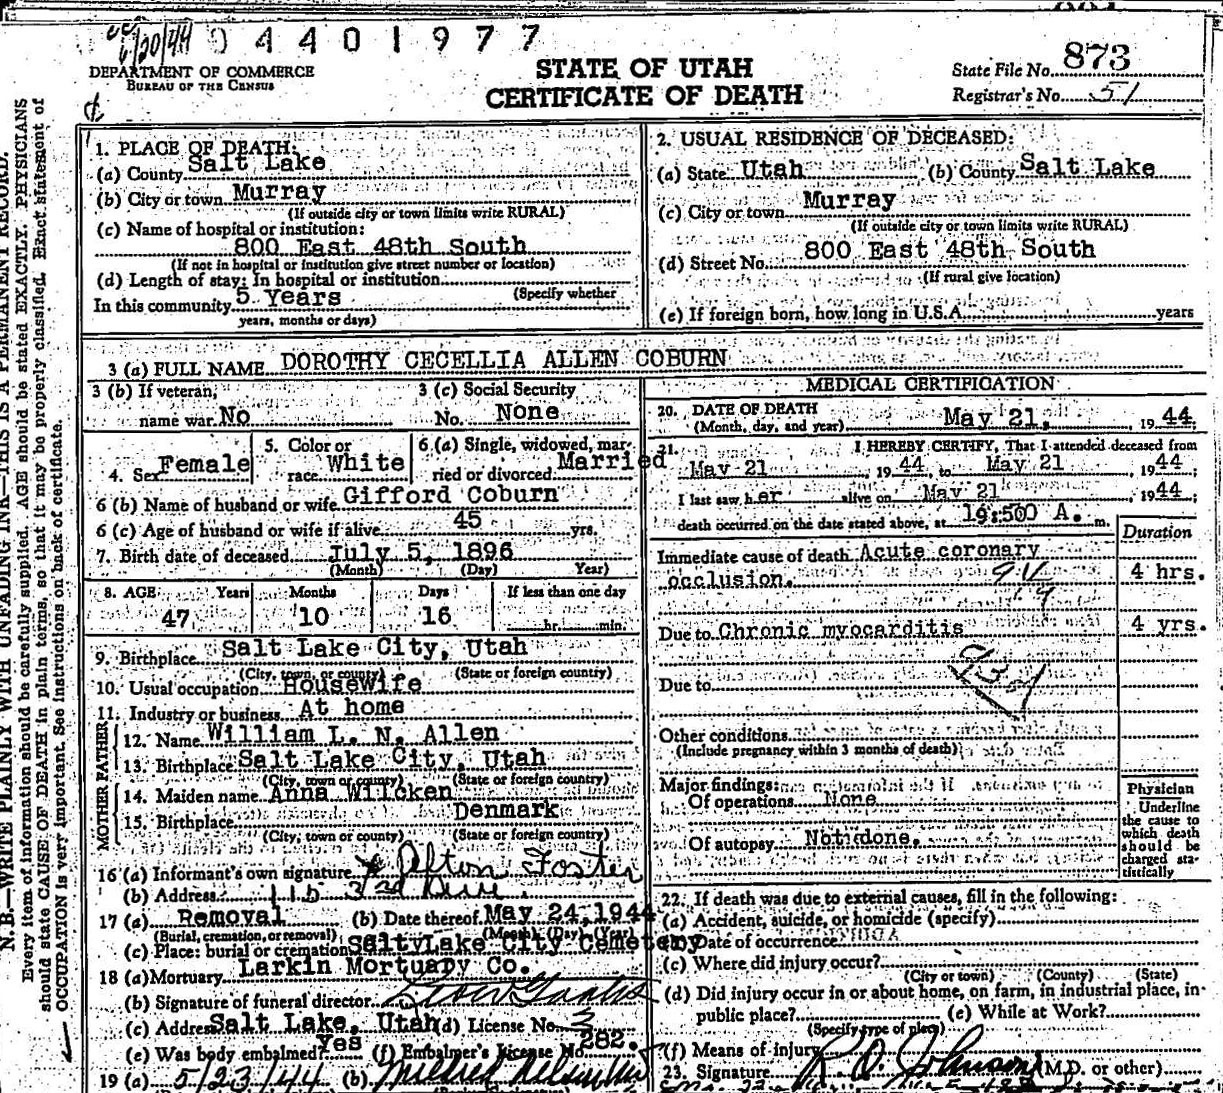 04401977
6/20/44
DEPARTMENT OF COMMERCE
BUREAU OF THE CENSUS
STATE OF UTAH
CERTIFICATE OF DEATH
State File No. 873
Registrar's No. 51
N. B.—WRITE PLAINLY WITH UNFADING INK—THIS IS A PERMANENT RECORD.
Every item of information should be carefully supplied. AGE should be stated EXACTLY. PHYSICIANS
should state CAUSE OF DEATH in plain terms, so that it may be properly classified. Exact statement of
OCCUPATION is very important. See instructions on back of certificate.
1. PLACE OF DEATH:
(a) County Salt Lake
(b) City or town Murray
(If outside city or town limits write RURAL)
(c) Name of hospital or institution:
800 East 48th South
(If not in hospital or institution give street number or location)
(d) Length of stay: In hospital or institution
(Specify whether
In this community 5 Years
years, months or days)
2. USUAL RESIDENCE OF DECEASED:
(a) State Utah (b) County Salt Lake
(c) City or town Murray
(If outside city or town limits write RURAL)
(d) Street No. 800 East 48th South
(If rural give location)
(e) If foreign born, how long in U.S.A. years
3 (a) FULL NAME DOROTHY CECELLIA ALLEN COBURN
3 (b) If veteran, 3 (c) Social Security
name war No No. None
4. Sex Female 5. Color or race White 6. (a) Single, widowed, married or divorced Married
6 (b) Name of husband or wife Gifford Coburn
6 (c) Age of husband or wife if alive 45 yrs.
7. Birth date of deceased July 5, 1896
(Month) (Day) Year)
8. AGE Years Months Days If less than one day
47 10 16 hr. min.
9. Birthplace Salt Lake City, Utah
(City, town, or county) (State or foreign country)
10. Usual occupation Housewife
11. Industry or business At home
FATHER
12. Name William L. N. Allen
13. Birthplace Salt Lake City, Utah
(City, town or county) (State or foreign country)
MOTHER
14. Maiden name Anna Wilcken
15. Birthplace Denmark
(City, town or county) (State or foreign country)
16 (a) Informant's own signature x Afton Foster
(b) Address
17 (a) Removal (b) Date thereof May 24, 1944
(Burial, cremation, or removal) (Month) (Day) (Year)
(c) Place: burial or cremation Salt Lake City Cemetery
18 (a) Mortuary Larkin Mortuary Co.
(b) Signature of funeral director
(c) Address Salt Lake, Utah (d) License No. 3
(e) Was body embalmed? Yes (f) Embalmer's License No. 282.
19 (a) 5/23/44 (b) Mildred
MEDICAL CERTIFICATION
20. DATE OF DEATH May 21, 1944;
(Month, day, and year)
21. I HEREBY CERTIFY, That I attended deceased from
May 21 1944, to May 21 1944;
I last saw her alive on May 21 1944;
death occurred on the date stated above, at A. m.
Duration
Immediate cause of death Acute coronary
occlusion. 4 hrs.
Due to Chronic myocarditis 4 yrs.
93d
Due to
Other conditions
(Include pregnancy within 3 months of death)
Major findings:
Of operations None
Of autopsy Not done.
Physician
Underline
the cause to
which death
should be
charged sta-
tistically
22. If death was due to external causes, fill in the following:
(a) Accident, suicide, or homicide (specify)
(b) Date of occurrence
(c) Where did injury occur?
(City or town) (County) (State)
(d) Did injury occur in or about home, on farm, in industrial place, in
public place? (e) While at Work?
(Specify type of place)
(f) Means of injury
23. Signature R. D. Johnson (M.D. or other)